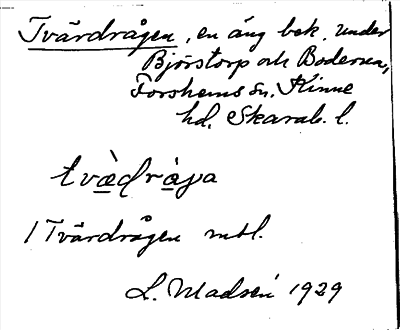 Tvärdrågen, en äng bek. under
Björstorp och Bodersen,
Forshems sn. Kinne
hd. Skarab. l.
tvæ̀dràɡa
1 Tvärdrågen mtl.
L. Madsén 1929